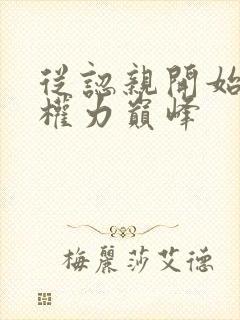 從認親開始
權力巔峰
梅麗莎艾德